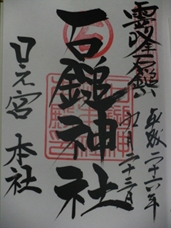 霊峰石鎚
平成二十六年
九月二十三日
石鎚神社
口之宮 本社